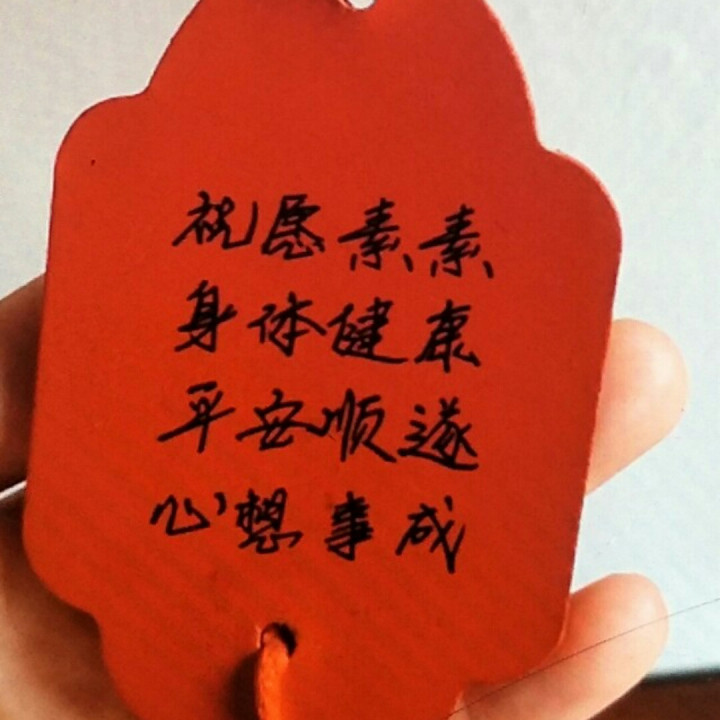 祝愿素素
身体健康
平安顺遂
心想事成